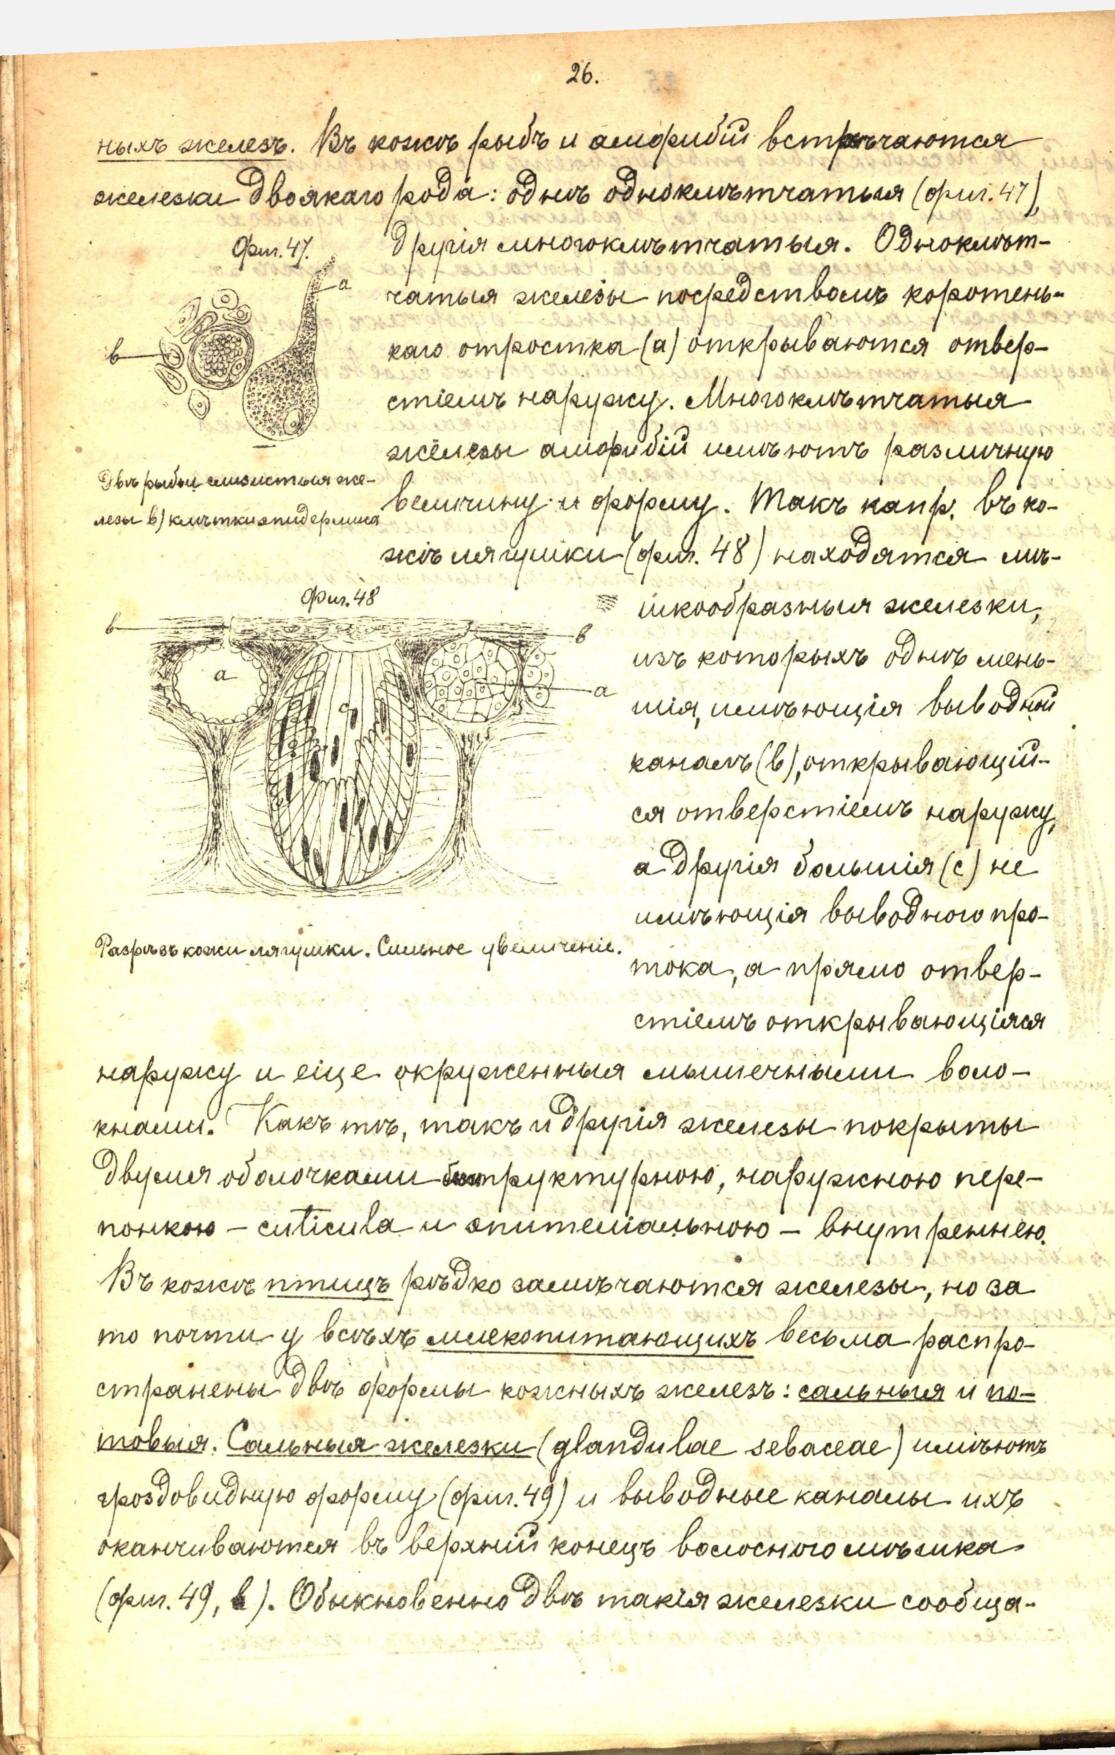 26.
ныхъ железъ. Въ кожѣ рыбъ и амфибій встрѣчаются
железки двоякаго рода: однѣ одноклѣтчатыя (фиг. 47),
другія многоклѣтчатыя. Одноклѣт-
чатыя железы посредствомъ коротень-
каго отростка (а) открываются отвер-
стіемъ наружу. Многоклѣтчатыя
железы амфибій имѣютъ различную
величину и форму. Такъ напр. въ ко-
жѣ лягушки (фиг. 48) находятся мѣ-
шкообразныя железки,
изъ которыхъ однѣ мень-
шія, имѣющія выводной
каналъ (в), открывающій-
ся отверстіемъ наружу,
а другія большія (с) не
имѣющія выводного про-
тока, а прямо отвер-
стіемъ открывающіяся
Фиг. 47.
а
в
Двѣ рыбьи слизистыя же-
лезы в) клѣтки эпидермиса
Фиг. 48
в
в
а
а
с
Разрѣзъ кожи лягушки. Сильное увеличеніе.
наружу и еще окруженныя мышечными воло-
кнами. Какъ тѣ, такъ и другія железы покрыты
двумя оболочками безструктурною, наружною пере-
понкою – cuticula и эпителіальною – внутреннею.
Въ кожѣ птицъ рѣдко замѣчаются железы, но за
то почти у всѣхъ млекопитающихъ весьма распро-
странены двѣ формы кожныхъ железъ: сальныя и по-
товыя. Сальныя железки (glandulae sebaceae) имѣютъ
гроздовидную форму (фиг. 49) и выводные каналы ихъ
оканчиваются въ верхній конецъ волосного мѣшка
(фиг. 49, в). Обыкновенно двѣ такія железки сообща-